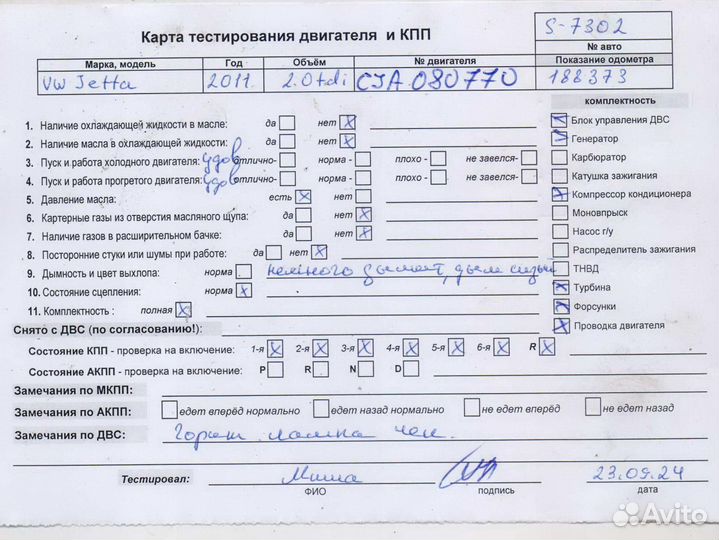 Карта тестирования двигателя и КПП
S-7302
№ авто
Марка, модель Год Объём № двигателя Показание одометра
VW Jetta 2011. 2.0 tdi CJA 080770 188373
комплектность
1. Наличие охлаждающей жидкости в масле: да нет X
Блок управления ДВС
2. Наличие масла в охлаждающей жидкости: да нет X
Генератор
3. Пуск и работа холодного двигателя: удов отлично- норма - плохо - не завелся-
Карбюратор
4. Пуск и работа прогретого двигателя: удов отлично- норма - плохо - не завелся-
Катушка зажигания
5. Давление масла: есть X нет
Компрессор кондиционера
6. Картерные газы из отверстия масляного щупа: да нет X
Моновпрыск
7. Наличие газов в расширительном бачке: да нет X
Насос г/у
8. Посторонние стуки или шумы при работе: да нет X
Распределитель зажигания
9. Дымность и цвет выхлопа: норма немного дымит, дым сизый
ТНВД
10. Состояние сцепления: норма X
Турбина
11. Комплектность : полная X
Форсунки
Снято с ДВС (по согласованию!):
Проводка двигателя
Состояние КПП - проверка на включение: 1-я X 2-я X 3-я X 4-я X 5-я X 6-я X R X
Состояние АКПП - проверка на включение: P R N D
Замечания по МКПП:
Замечания по АКПП: едет вперёд нормально едет назад нормально не едет вперёд не едет назад
Замечания по ДВС: Горит лампа чек.
Тестировал: Миша 23.09.24
ФИО подпись дата
Avito